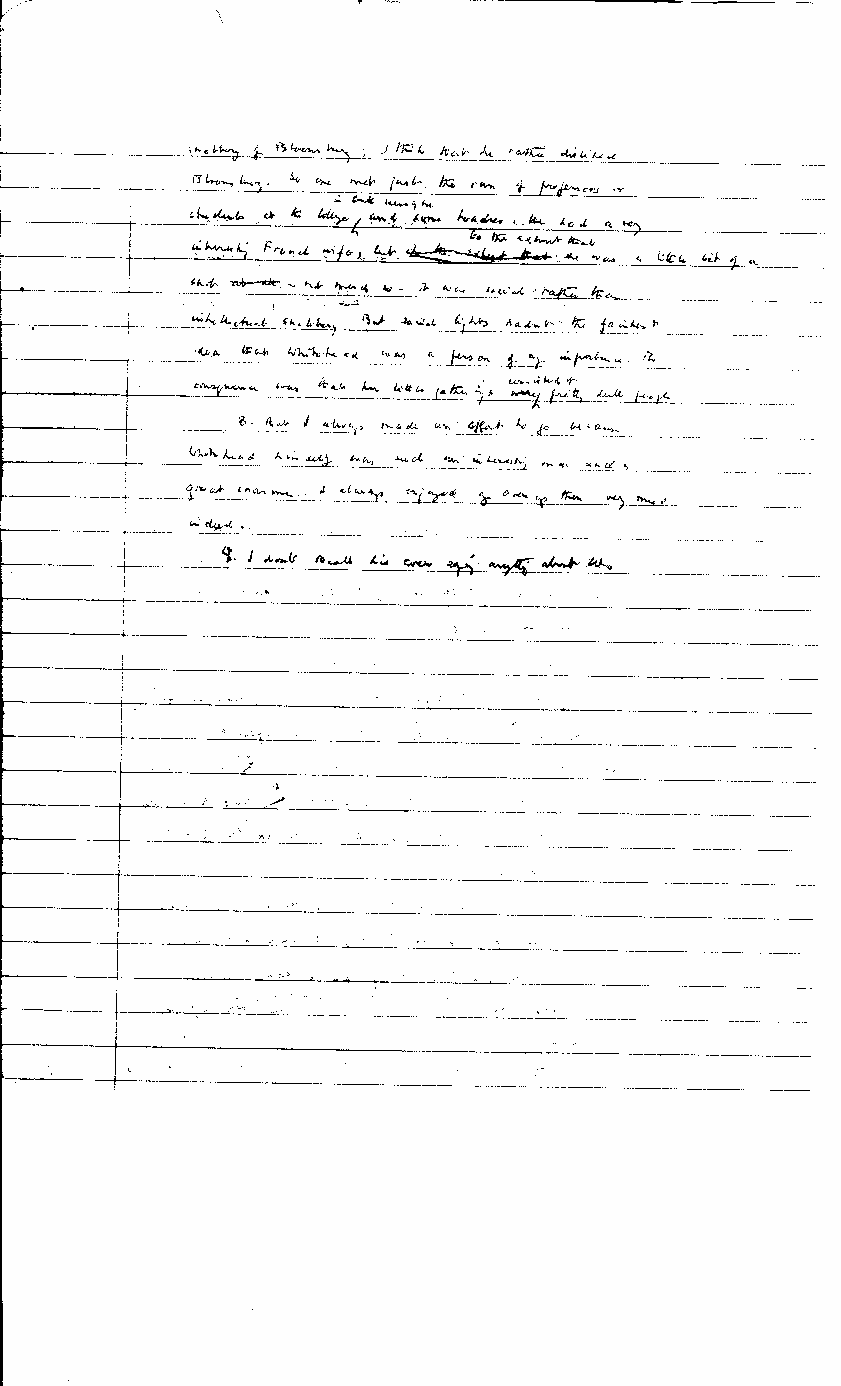 snobbery of Bloomsbury; I think that he rather disliked
Bloomsbury. So one met just the run of professors or
students at the College, and some
to the extent that
interesting French wife, but to the extent that she was a little bit of a
snob – not much so – it was social rather than
intellectual snobbery. But social lights hadn't the faintest
idea that Whitehead was a person of any importance. The
consisted of
consequence was that her little gatherings pretty dull people
8. But I always made an effort to go because
Whitehead himself was such an interesting man and a
great charmer. I always enjoyed going them very much
indeed.
9. I don't recall his ever saying anything about